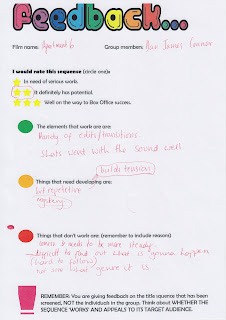 Feedback...
Film name: Apartment 6 Group members: Max James Connor
I would rate this sequence (circle one):
In need of serious work.
It definitely has potential.
Well on the way to Box Office success.
The elements that work are are:
Variety of edits/transitions.
Shots work with the sound well
builds tension
Things that need developing are:
bit repetetive
mystery
Things that don't work are (remember to include reasons)
camera needs to be more steady
difficult to find out what is gonna happen
(hard to follow)
not sure what genre it is
REMEMBER: You are giving feedback on the title squence that has been
screened, NOT the individuals in the group. Think about WHETHER THE
SEQUENCE WORKS AND APPEALS TO ITS TARGET AUDIENCE.